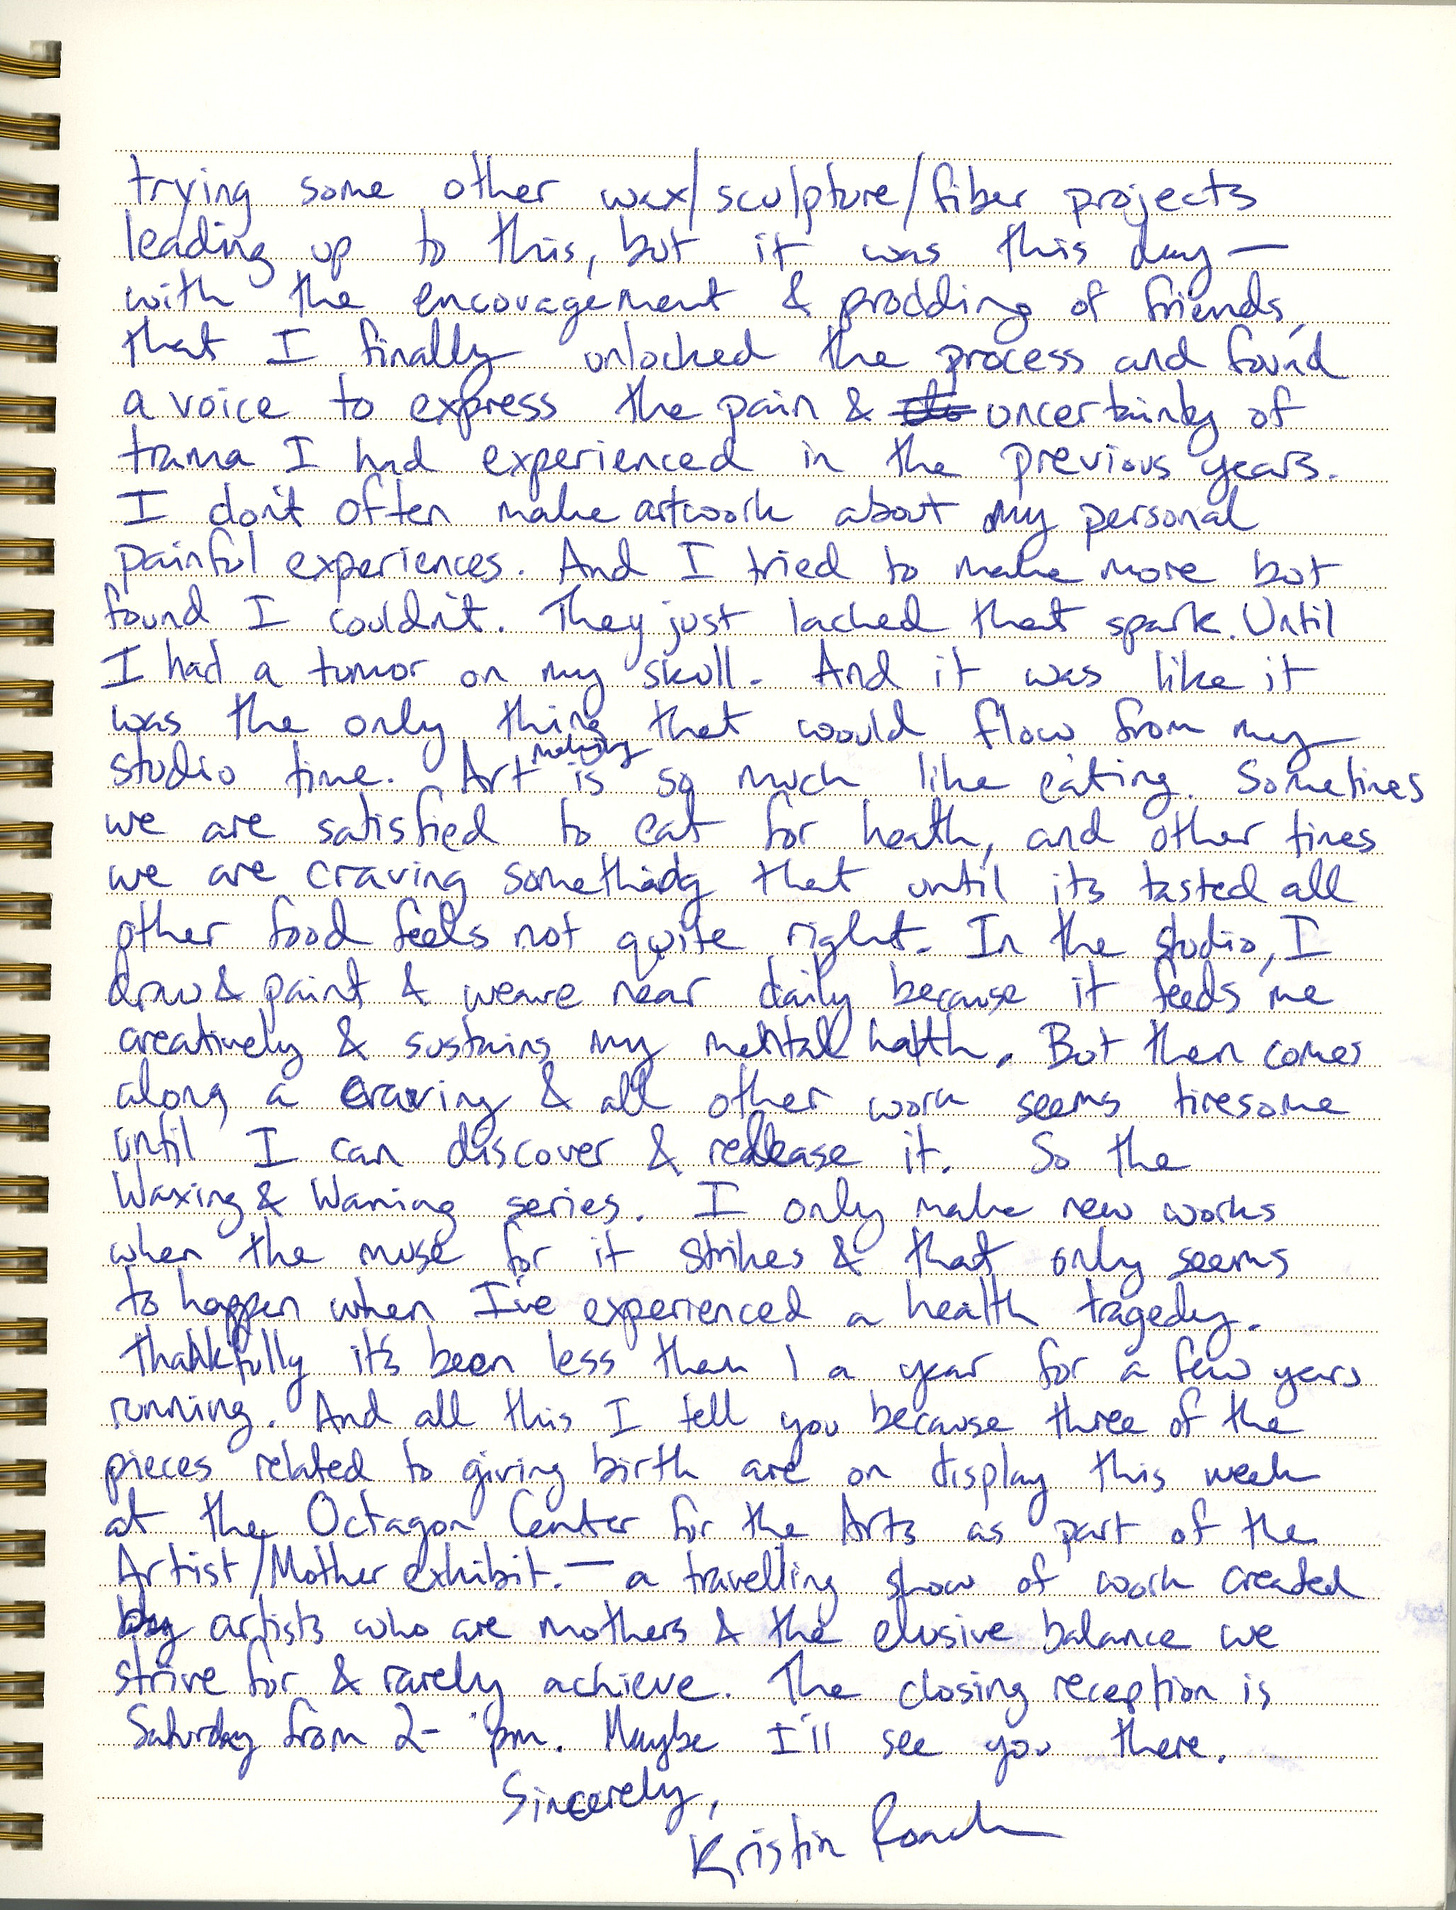 trying some other wax/sculpture/fiber projects
leading up to this, but it was this day—
with the encouragement & prodding of friends,
that I finally unlocked the process and found
a voice to express the pain & uncertainty of
trama I had experienced in the previous years.
I don't often make artwork about my personal
painful experiences. And I tried to make more but
found I couldn't. They just lacked that spark. Until
I had a tumor on my skull. And it was like it
was the only thing that would flow from my
studio time. Art making is so much like eating. Sometimes
we are satisfied to eat for heath, and other times
we are craving something that until its tasted all
other food feels not quite right. In the studio, I
draw & paint & weave near daily because it feeds me
creatively & sustains my mental halth. But then comes
along a craving & all other work seems tiresome
until I can discover & release it. So the
Waxing & Waning series. I only make new works
when the muse for it strikes & that only seems
to happen when I've experienced a health tragedy.
Thankfully it's been less then 1 a year for a few years
running. And all this I tell you because three of the
pieces related to giving birth are on display this week
at the Octagon Center for the Arts as part of the
Artist/Mother exhibit.— a travelling show of work created
by artists who are mothers & the elusive balance we
strive for & rarely achieve. The closing reception is
Saturday from 2- pm. Maybe I'll see you there.
Sincerely,
Kristin Roach